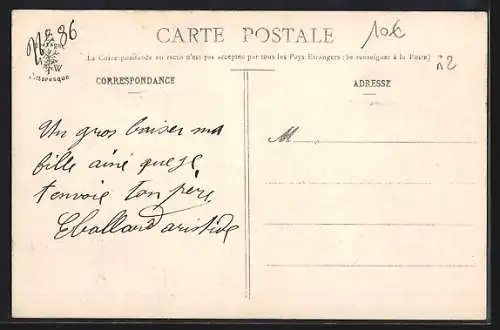 N° 86
CARTE POSTALE
10€
La Correspondance au recto n'est pas acceptée par tous les Pays Etrangers (Se renseigner à la Poste)
n2
CORRESPONDANCE
ADRESSE
Un gros baiser ma
fille ainé que je
t'envoie ton père
Eballard aristide
M